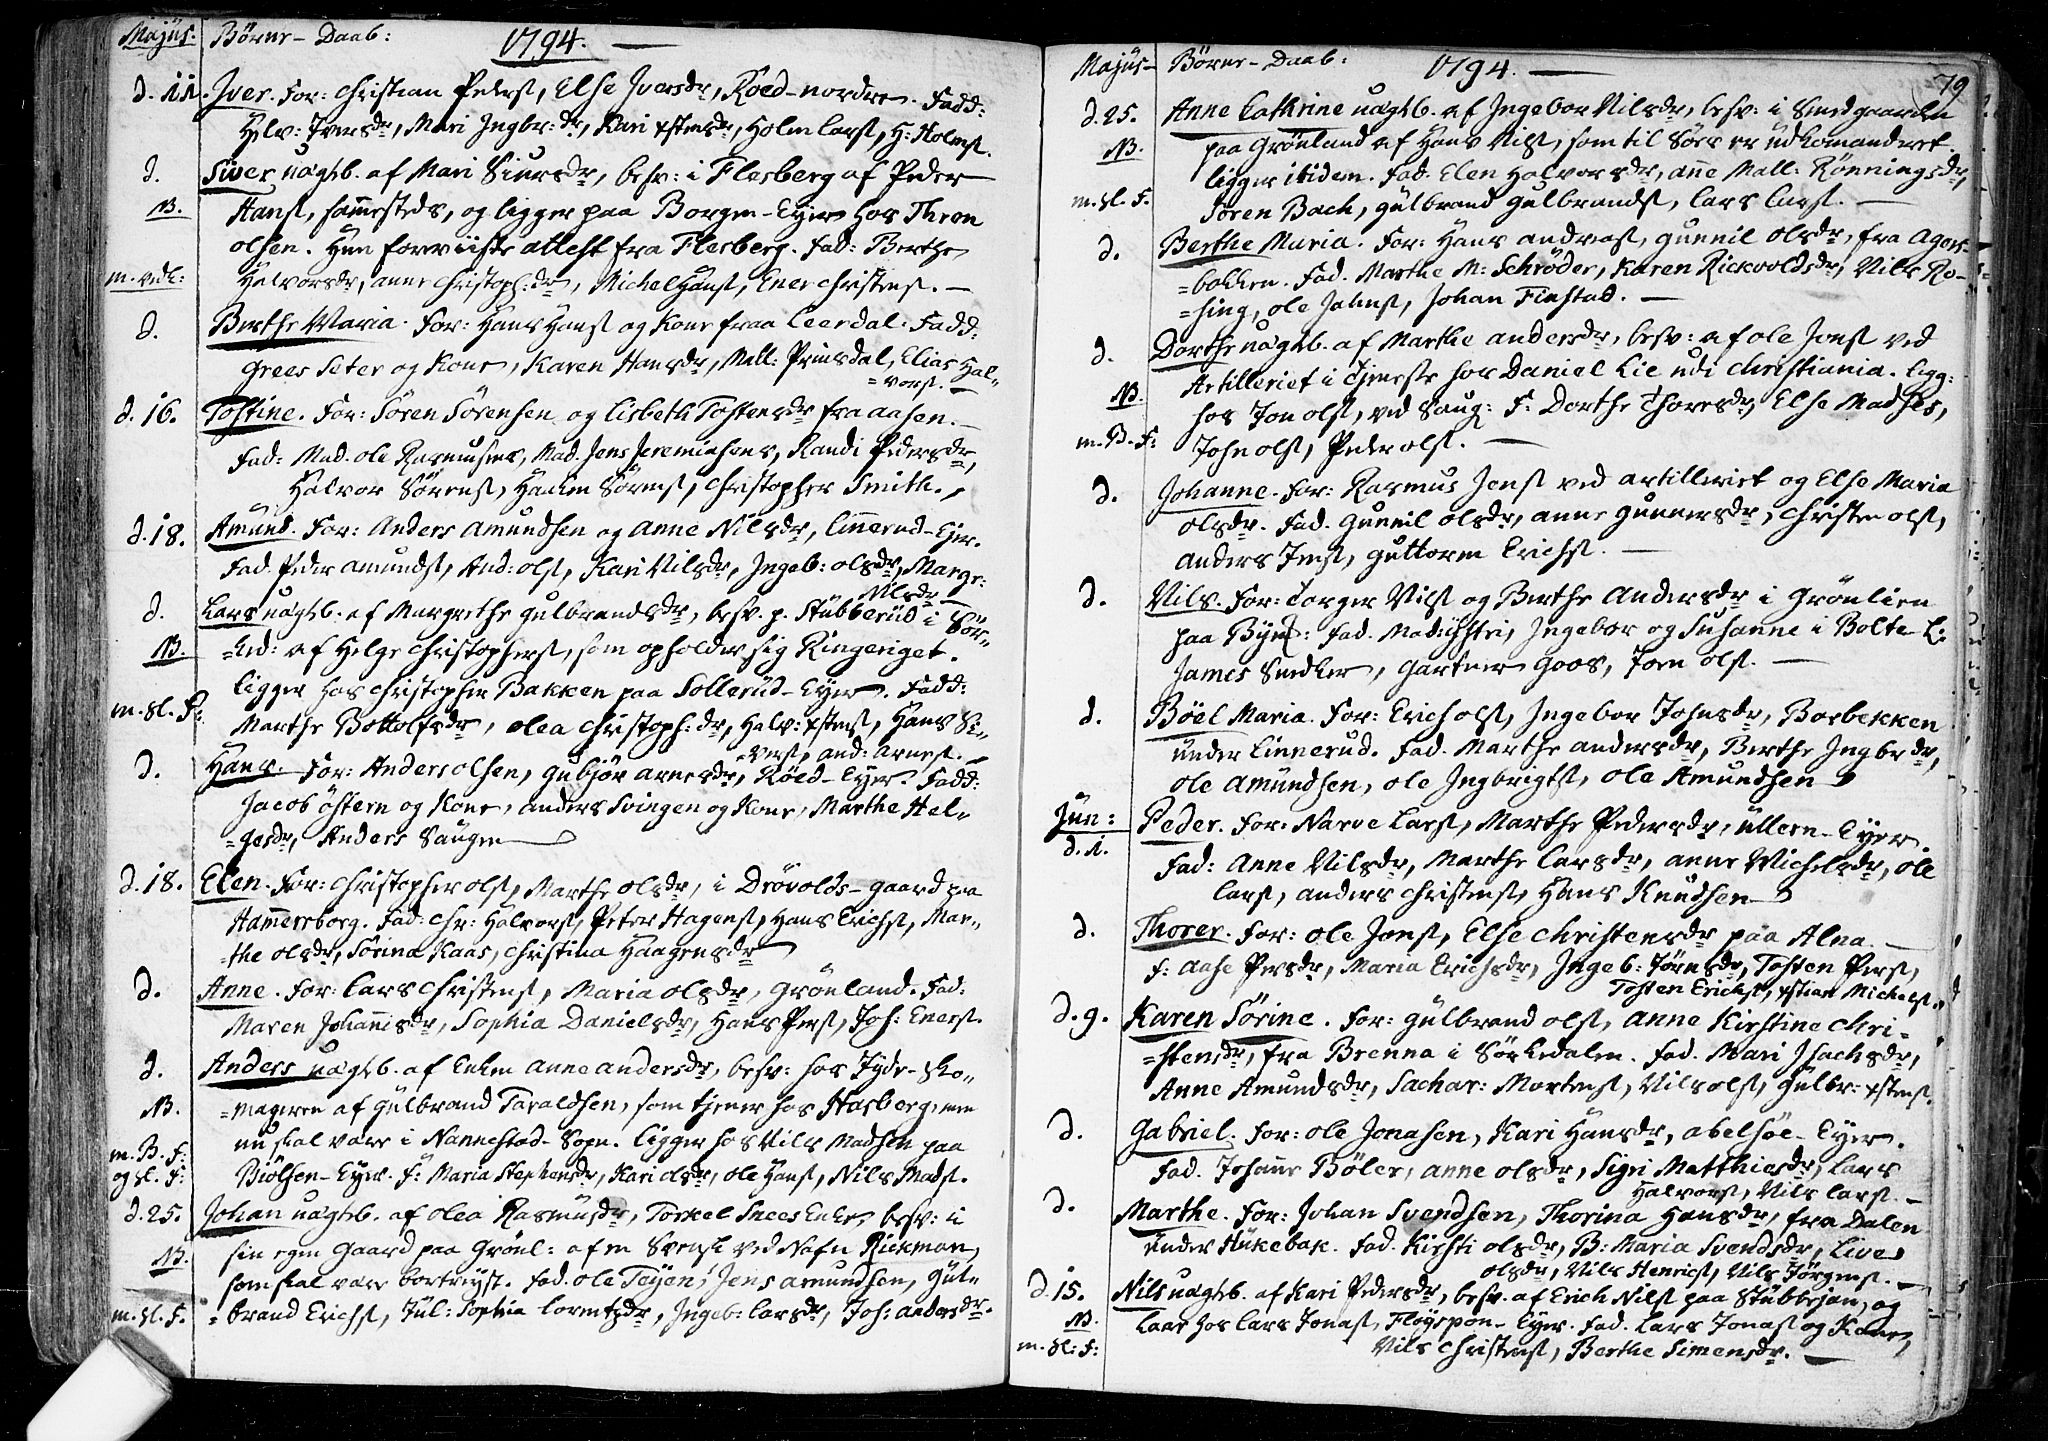 Majus. Börne-Daab: 1794.
d. 11. Iver. For: Christian Peders, Else Iversdr, Röed-nordre. Fadd:
Helv: Iversdr, Mari Ingbr:dr, Kari xstensdr, Holm Lars, H: Holms.
d. Siver uægteb. af Mari Siursdr, besv: i Flesberg af Peder
NB. Hans, sammesteds, og ligger paa Borgen-Eyer hos Thron
Olsen. Hun foreviiste attest fra Flesberg. Fad: Berthe
m. rdl: Halvorsdr, Anne Christoph:dr, Michel Hans, Ener Christens.
d. Berthe Maria. For: Hans Hans og Kone fraa Leerdal. Fadd:
Grees Seter og Kone, Karen Hansdr, Mall: Prinsdal, Elias Hal-
=vors.
d. 16. Tostine. For: Sören Sörensen og Lisbeth Tostensdr fra Aasen.
Fad: Mad. Ole Rasmusens, Mad. Jens Jeremiasens, Randi Pedersdr,
Halvor Sörens, Hachen Sörens, Christopher Smith.
d. 18. Amund. For: Anders Amundsen og Anne Nilsdr, Linnerud-Ejer.
Fad. Peder Amunds, And: Ols, Kari Nilsdr, Ingeb: Olsdr, Margr:
Nilsdr
d. Lars uægteb. af Margrethe Gulbrandsdr, besv. p. Stubberüd i Sör-
NB. =ked: af Helge Christophers, som opholder sig Ringeriget.
ligger hos Christopher Bakken paa Sollerüd-Eyer. Fadd:
m. Sl. F: Marthe Bottolfsdr, Olea Christoph:dr, Halv: xstens, Hans Si-
=vers, And: Arnes.
d. Hans. For: Anders Olsen, Gubjör Arnesdr, Röed-Eyer. Fadd:
Jacob Östern og Kone, Anders Svingen og Kone, Marthe Hel-
=gesdr, Anders Saugen
d. 18. Elen. For: Christopher Ols, Marthe Olsdr, i Drövolds-gaard paa
Hammersborg. Fad: Chr: Halvors, Peter Hagens, Hans Erichs, Mar-
=the Olsdr, Sörina Kaas, Christina Haagensdr
d. Anne. For: Lars Christens, Maria Olsdr, Grönland. Fad:
Maren Johannisdr, Sophia Danielsdr, Hans Pers, Joh: Eners.
d. Anders uægteb. af Enken Anne Andersdr, besv: hos Tyde-sko-
NB. =mageren af Gulbrand Taraldsen, som tjener hos Hasberg, men
nu skal være i Nannestad-Sogn. ligger hos Nils Madsen paa
m. B. F: og Sl. F: Biölsen-Eyer. F: Maria Stephensdr, Kari Olsdr, Ole Hans, Nils Mads.
d. 25. Johan uægteb. af Olea Rasmusdr, Torkel Snees Enke, besv: i
NB. sin egen Gaard paa Grönl: af en Svensk ved Nafn Rickman,
som skal være bortreyst. Fad. Ole Teyen, Jens Amundsen, Gul-
m. Sl. F. =brand Erichs, Jul: Sophia Lorentzdr, Ingeb: Larsdr, Joh: Andersdr.
Majus- Börne-Daab: 1794. 79
d. 25. Anne Cathrine uægteb. af Ingebor Nilsdr, besv: i Smedgaarden
NB. paa Grönland af Hans Nils, som til Söes er udkomanderet.
ligger ibidem. Fad. Elen Halvorsdr, Anne Mall: Rönningsdr,
m. Sl. F. Sören Bach, Gulbrand Gulbrands, Lars Lars.
d. Berthe Maria. For: Hans Andreas, Gunnil Olsdr, fra Agers-
=bakken. Fad. Marthe M: Schröder, Karen Rickvoldsdr, Nils Ro-
=sing, Ole Johns, Johan Finstad.
d. Dorthe uægteb. af Marthe Andersdr, besv: af Ole Jons ved
Artilleriet i Tjeneste hos Daniel Lie udi Christiania. ligg:
NB. hos Jon Ols, ved Saug: F: Dorthe Thoresdr, Else Madses,
m. B. F: John Ols, Peder Ols.
d. Johanne. For: Rasmus Jens ved Artilleriet og Else Maria
Olsdr. Fad. Gunnil Olsdr, Anne Gunnersdr, Christen Ols,
Anders Jens, Guttorm Erichs.
d. Nils. For: Torger Nils og Berthe Andersdr i Grönlien
paa Byn: Fad. Ingebor og Susanne i Bolte-L:
James Smedker, Gartner Goos, Joen Ols.
d. Böel Maria. For: Erich Ols, Ingebor Johnsdr, Borbekken
under Linnerud. Fad. Marthe Andersdr, Berthe Ingbrdr,
Ole Amündsen, Ole Ingbrigts, Ole Amundsen
Jun: d. 1. Peder. For: Narve Lars, Marthe Pedersdr, Ullern-Eyer.
Fad: Anne Nilsdr, Marthe Larsdr, Anne Michelsdr, Ole
Lars, Anders Christens, Hans Knudsen
d. Thorer. For: Ole Jons, Else Christensdr paa Alna.
F: Aase Persdr, Maria Erichsdr, Ingeb: Jörnsdr, Tosten Pers,
Tosten Erichs, xstian Michels.
d. 9. Karen Sörine. For: Gülbrand Ols, Anne Kirstine Chri-
=stensdr, fra Brenna i Sörkedalen. Fad. Mari Isachsdr,
Anne Amundsdr, Sachar: Mortens, Nils Ols, Gulbr: xstens.
d. Gabriel. For: Ole Jonasen, Kari Hansdr, Abelsöe-Eyer.
Fad. Johanne Böler, Anne Olsdr, Sigri Matthiesdr, Lars
Halvors, Nils Lars.
d. Marthe. For: Johan Svendsen, Thorina Hansdr, fra Dalen
under Hükebak. Fad. Kirsti Olsdr, B: Maria Svendsdr, Live
Olsdr, Nils Henrics, Nils Jörgens.
d. 15. Nils uægteb. af Kari Pedersdr, besv. af Erich Nils paa Stubbejan, og
NB. laae hos Lars Jonas, Flöyspon-Eyer. Fad. Lars Jonas og Kone,
m. Sl: F: Nils Christens, Berthe Simensdr.